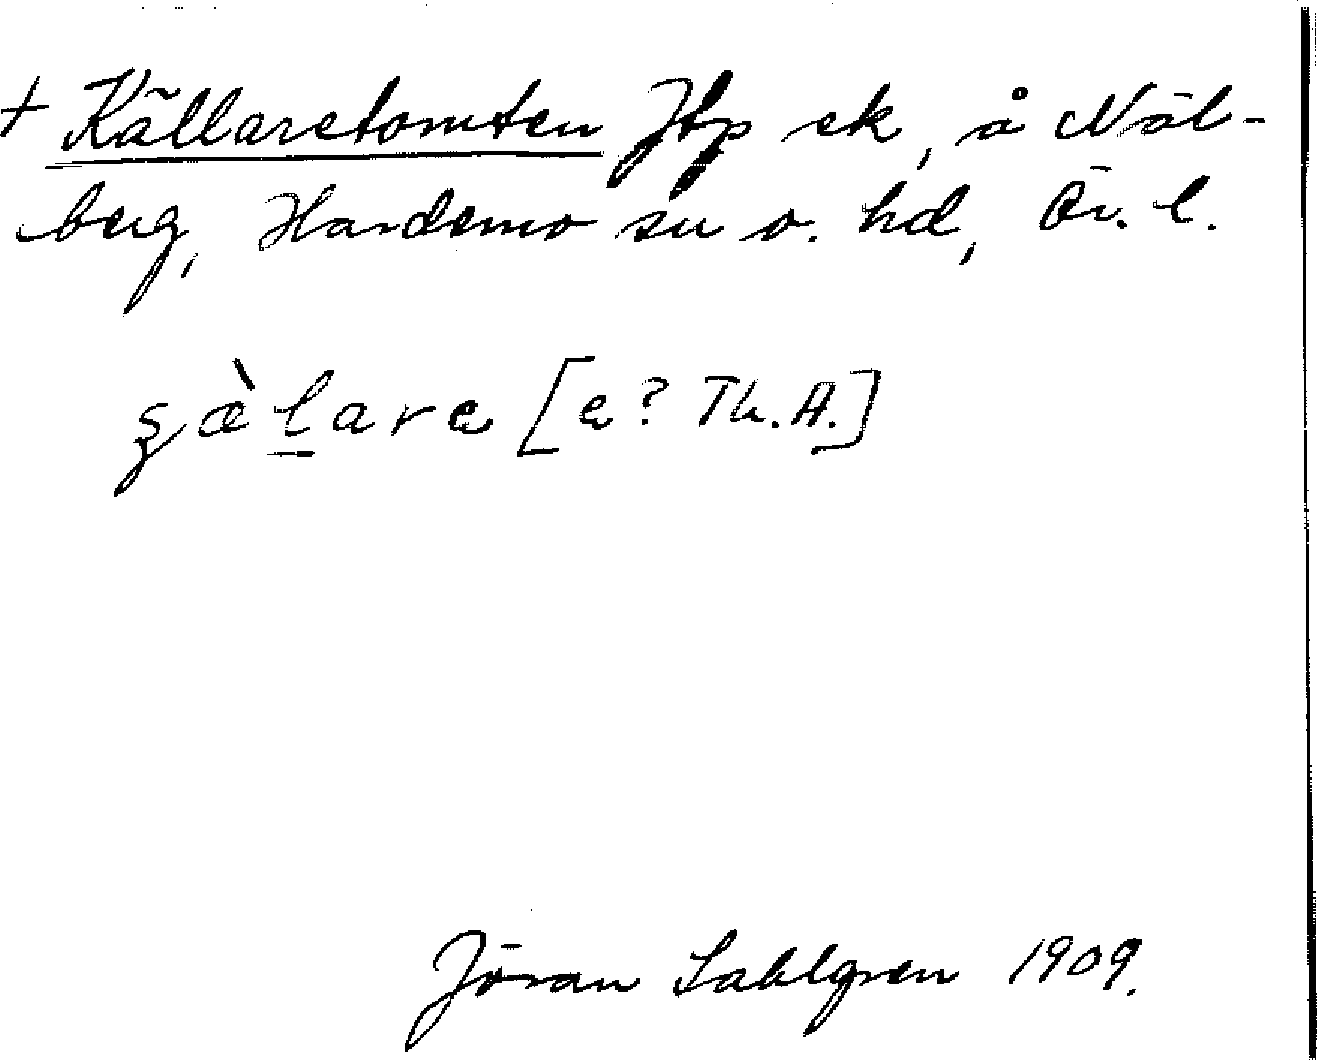 + Källaretomten Jtp ek, å Näl-
berg, Hardemo sn o. hd, Ör. l.
ʂæ̀l̲are [e? Th.A.]
Jöran Sahlgren 1909.